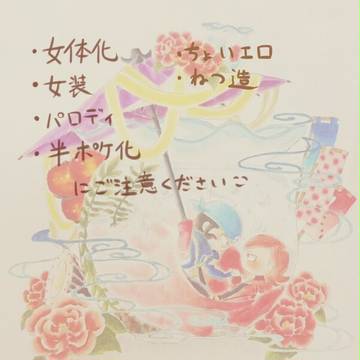 ・女体化
・女装
・パロディ
・半ポケ化
・ちょいエロ
・ねつ造
にご注意ください